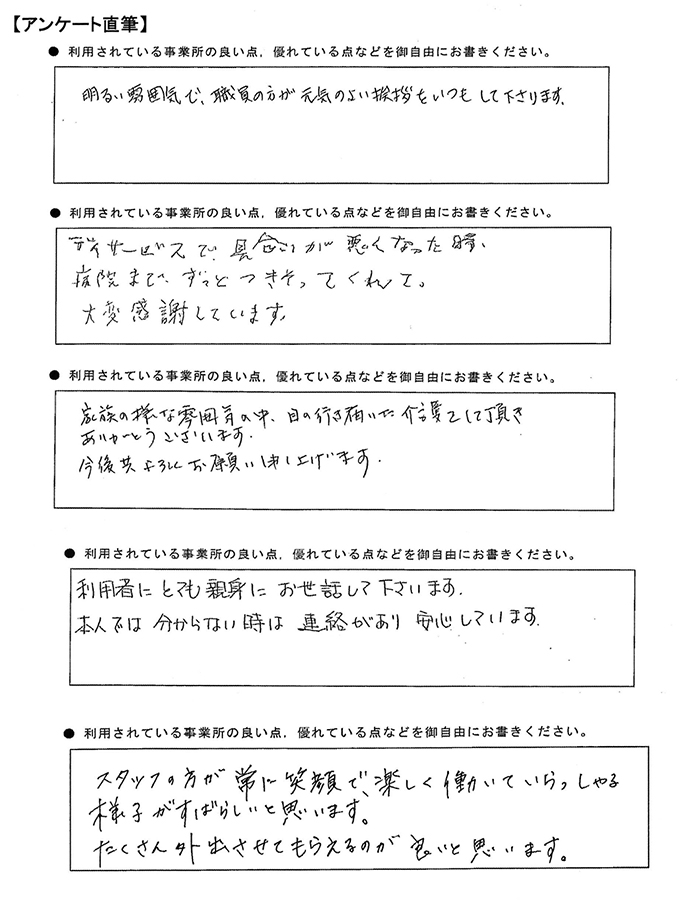 【アンケート直筆】
● 利用されている事業所の良い点，優れている点などを御自由にお書きください。
明るい雰囲気で、職員の方が元気のよい挨拶をいつもして下さります。
● 利用されている事業所の良い点，優れている点などを御自由にお書きください。
デイサービスで、具合が悪くなった時、
病院まで、ずっとつきそってくれて。
大変感謝しています。
● 利用されている事業所の良い点，優れている点などを御自由にお書きください。
家族の様な雰囲気の中、目の行き届いた介護をして頂き
ありがとうございます.
今後共よろしくお願い申し上げます.
● 利用されている事業所の良い点，優れている点などを御自由にお書きください。
利用者にとても親身にお世話して下さいます.
本人では分からない時は連絡があり安心しています.
● 利用されている事業所の良い点，優れている点などを御自由にお書きください。
スタッフの方が常に笑顔で、楽しく働いていらっしゃる
様子がすばらしいと思います。
たくさん外出させてもらえるのが良いと思います。